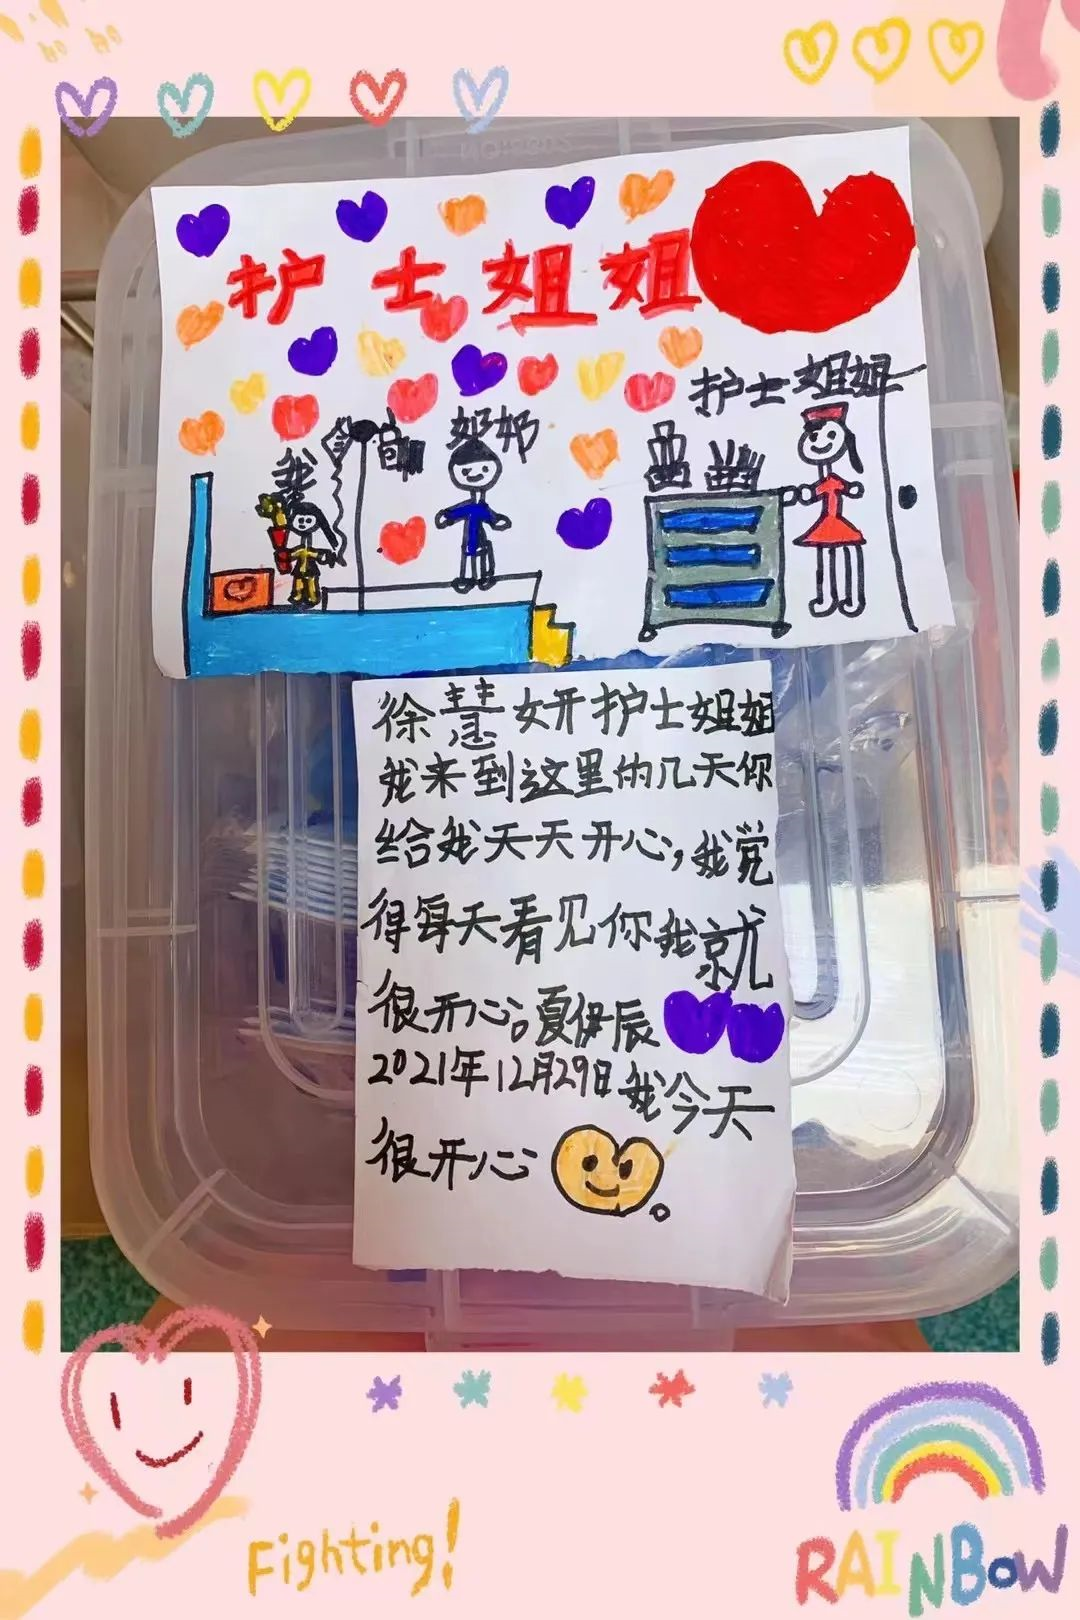 护士姐姐
护士姐姐
奶奶
我
徐慧妍护士姐姐
我来到这里的几天你
给我天天开心,我觉
得每天看见你我就
很开心。夏伊辰
2021年12月29日我今天
很开心。
Fighting!
RAINBOW